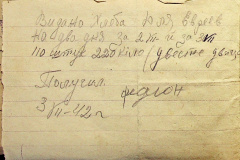 Видано Хлеба Для Евреев
на два дня за 2 т и за 3 т
110 штук 220 кило (двести двадц
Получил
3/VII-42 г